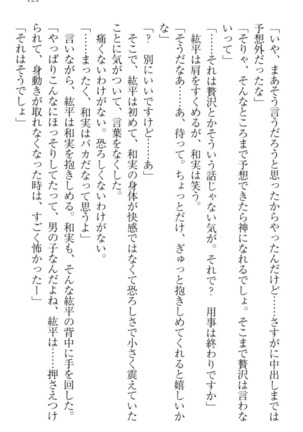 「いや、まあそう言うだろうと思ったからやったんだけど……さすがに中出しまでは
予想外だったな」
「そりゃ、そんなところまで予想できたら神になれるでしょ。そこまで贅沢は言わな
いで」
「……それは贅沢とかそういう話じゃない気が。それで？　用事は終わりですか」
　紘平は肩をすくめるが、和実は笑う。
「そうだなあ……あ、待って。ちょっとだけ、ぎゅっと抱きしめてくれると嬉しいか
な」
「？　別にいいですけど……あ」
　そこで、紘平は初めて、和実の身体が快感ではなくて恐ろしさで小さく震えていた
ことに気がついて、言葉をなくした。
　痛くないわけがない。恐ろしくないわけがない。
「……まったく、和実はバカだなって思うよ」
　言いながら、紘平は和実を抱きしめる。和実も、そんな紘平の背中に手を回した。
「やっぱりこんなにほっそりしてたって、男の子なんだよね、紘平は……押さえつけ
られて、身動きが取れなくなった時は、すごく怖かったー」
「それはそうでしょ」